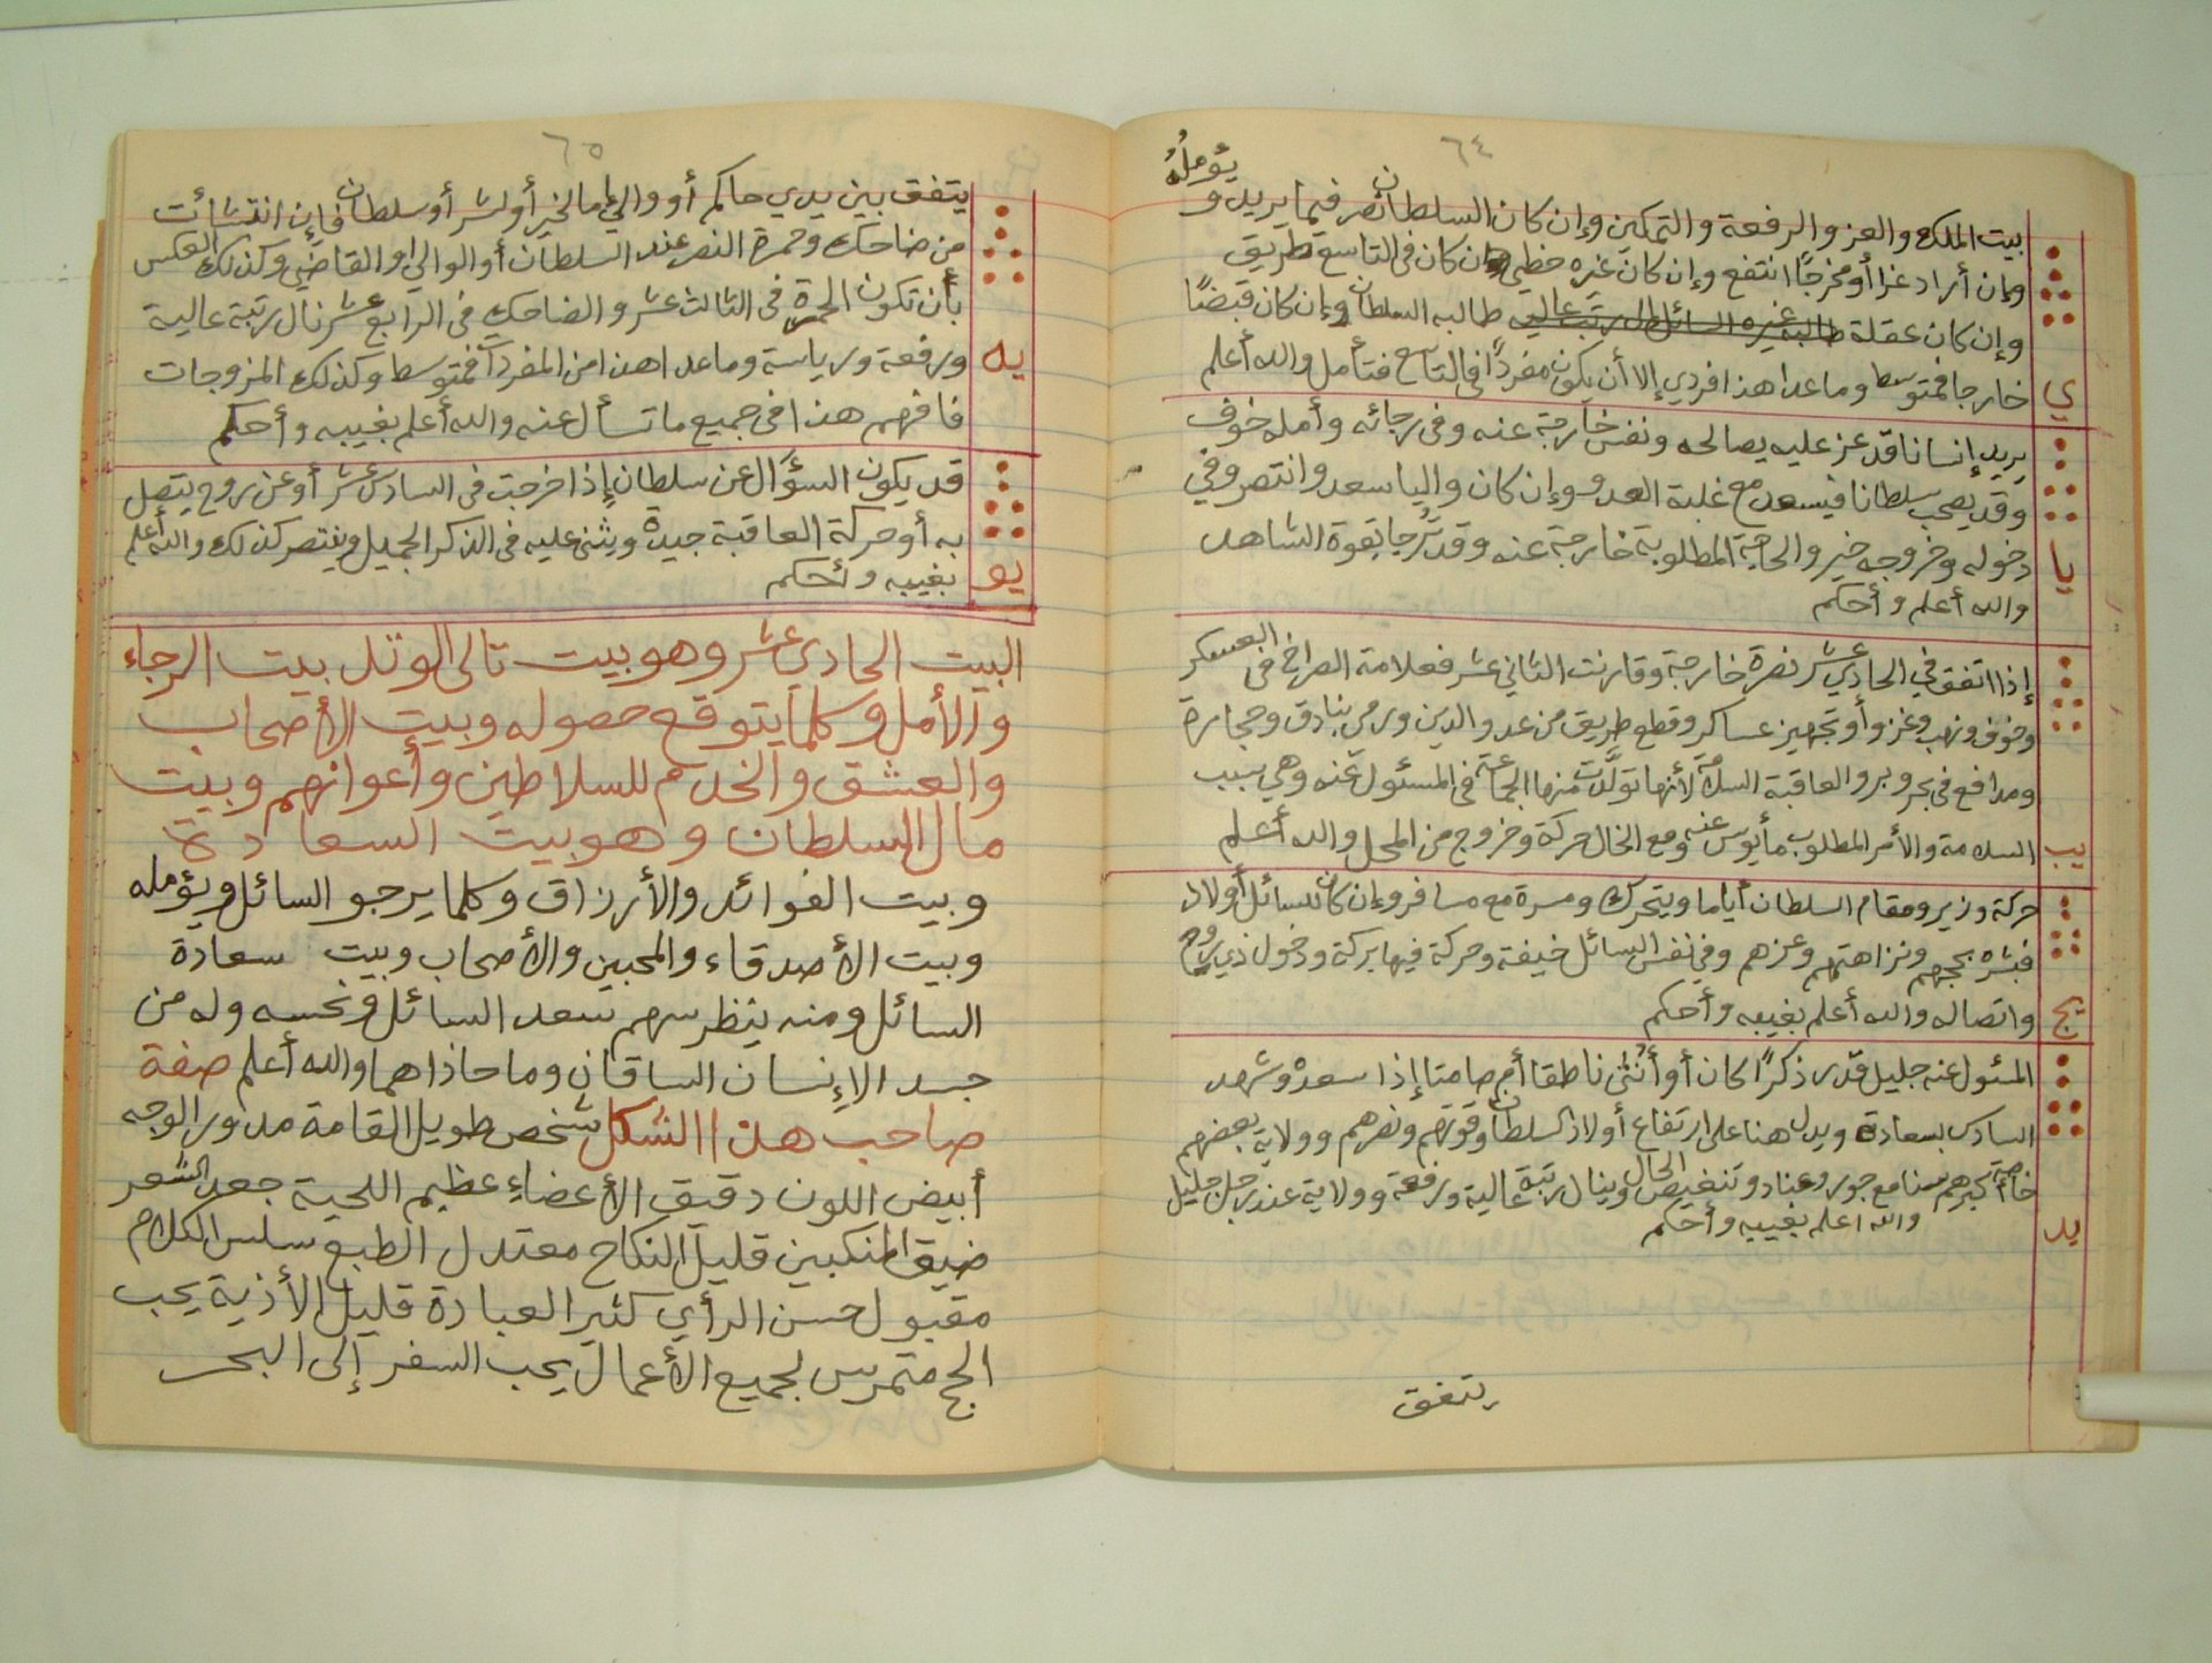 ٦٤
يؤملهُ
بيت الملك والعز والرفعة والتمكين وإن كان السلطان نصر فيما يريد و
وإن أراد عزا أو مخرجًا انتفع وإن كان غيره حظي وإن كان في التاسع طريق
وإن كان عقلة طالبه غيره السائل طالبه السلطان وإن كان قبضًا
ي
خارجا فمتوسط وما عدا هذا فردي إلا أن يكون مفردًا في التاسع فتأمل والله أعلم
يريد إنسانا قد عز عليه يصالحه ونفس خارجة عنه وفى رجائه وأمله خوف
وقد يصحب سلطانا فيسعد مع غلبة العدو وإن كان واليا سعد وانتصر وفي
يا
دخوله وخروجه خير والحاجة المطلوبة خارجة عنه وقد تُرجا بقوة الشاهد
والله أعلم وأحكم
إذا اتفق في الحادي عشر نصرة خارجة وقارنت الثاني عشر فعلامة الصراخ فى العسكر
وخوف ونهب وغزو أو تجهيز عساكر وقطع طريق من عدو الدين ورمي بنادق وحجارة
ومدافع في بحر وبر والعاقبة السلامة لأنها تولَّدت منها الجماعة فى المسئول عنه وهي بسبب
يب
السلامة والأمر المطلوب مأيوس عنه ومع الخال حركة وخروج من المحل والله أعلم
حركة وزير ومقام السلطان أياما ويتحرك ومسرة مع مسافر وإن كان للسائل أولاد
فبشره بحجهم ونزاهتهم وعزهم وفي نفس السائل خيفة وحركة فيها بركة ودخول ذي روح
يج
واتصاله والله أعلم بغيبه وأحكم
المسئول عنه جليل قدر ذكرًا كان أو أنثى ناطقا أم صامتا إذا سعده وشهد
السادس بسعادة ويدل هنا على ارتفاع أولاد السلطان وقوتهم ونصرهم وولاية بعضهم
خاصة أكبرهم سنا مع جور وعناد وتنغيص الحال وينال رتبة عالية ورفعة وولاية عند رجل جليل
يد
والله اعلم بغيبه وأحكم
يتفق
٦٥
يتفق بين يدي حاكم أو والي إما لخير أو لشر أو سلطان فإن انتشأت
من ضاحك وحمرة النصر عند السلطان أو الوالي أو القاضي وكذلك العكس
بأن تكون الحمرة فى الثالث عشر والضاحك فى الرابع عشر نال رتبة عالية
يه
ورفعة ورياسة وما عدا هذا من المفردات فمتوسط وكذلك المزوجات
فافهم هذا فى جميع ما تسأل عنه والله أعلم بغيبه وأحكم
قد يكون السؤال عن سلطان إذا خرجت فى السادس عشر أو عن روح يتصل
به أو حركة العاقبة جيدة ويثنى عليه فى الذكر الجميل وينتصر كذلك والله أعلم
يو
بغيبه وأحكم
البيت الحادي عشر وهو بيت تالى الوتد بيت الرجاء
والأمل وكلما يتوقع حصوله وبيت الأصحاب
والعشق والخدم للسلاطين وأعوانهم وبيت
مال السلطان وهو بيت السعادة
وبيت الفوائد والأرزاق وكلما يرجو السائل ويؤمله
وبيت الأصدقاء والمحبين والأصحاب وبيت سعادة
السائل ومنه ينظر سهم سعد السائل ونحسه وله من
جسد الإنسان الساقان وما حاذاهما والله أعلم صفة
صاحب هذا الشكل شخص طويل القامة مدور الوجه
أبيض اللون دقيق الأعضاء عظيم اللحية جعد الشعر
ضيق المنكبين قليل النكاح معتدل الطبع سلس الكلام
مقبول حسن الرأي كثير العبادة قليل الأذية يحب
الحج متمرس بجميع الأعمال يحب السفر إلى البحر